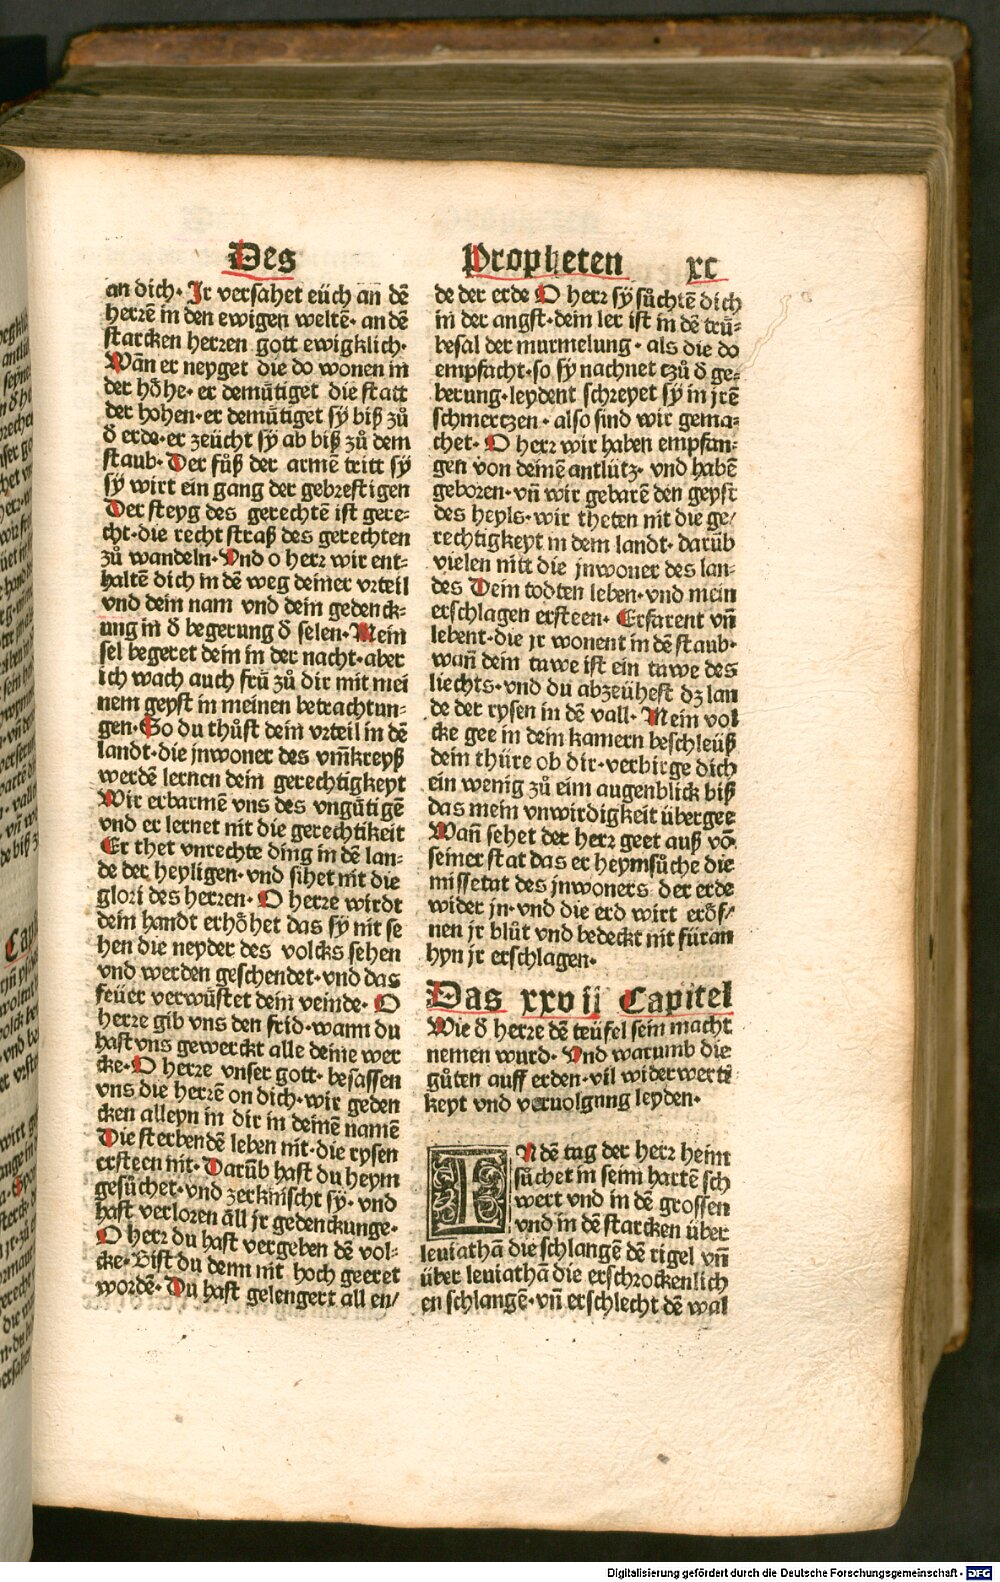 Des
Propheten xc
an dich· Ir versahet eüch an dē
herrē in den ewigen weltē· an dē
starcken herren gott ewigklich·
Wān er neyget die do wonen in
der hōhe· er demūtiget die statt
der hohen· er demūtiget sy biß zů
d erde· er zeücht sy ab biß zů dem
staub· Der fůß der armē tritt sy
sy wirt ein gang der gebrestigen
Der steyg des gerechtē ist gere⸗
cht· die recht straß des gerechten
zů wandeln· Vnd o herr wir ent⸗
haltē dich in dē weg deiner vrteil
vnd dein nam vnd dein gedenck⸗
ung in d begerung d selen· Mein
sel begeret dein in der nacht· aber
ich wach auch frü zů dir mit mei
nem geyst in meinen betrachtun⸗
gen· So du thůst dein vrteil in dē
landt· die jnwoner des vm̄kreyß
werdē lernen dein gerechtigkeyt
Wir erbarmē vns des vngūtigē
vnd er lernet nit die gerechtikeit
Er thet vnrechte ding in dē lan⸗
de der heyligen· vnd sihet nit die
glori des herren· O herre wirdt
dein handt erhōhet das sy nit se
hen die neyder des volcks sehen
vnd werden geschendet· vnd das
feüer verwūstet dein veinde· O
herze gib vns den frid· wann du
hast vns gewerckt alle deine wer
cke· O herze vnser gott· besassen
vns die herrē on dich· wir geden
cken alleyn in dir in deinē namē
Die sterbendē leben nit· die rysen
ersteen nit· Darūb hast du heym
gesůchet· vnd zerknischt sy· vnd
hast verloren all jr gedenckunge·
O herr du hast vergeben dē vol⸗
cke· Bist du denn nit hoch geeret
wordē· Du hast gelengert all en/
de der erde O herr sy sůchtē dich
in der angst· dein ler ist in dē trü⸗
besal der murmelung· als die do
empfacht· so sy nachnet tzů d ge⸗
berung· leydent schreyet sy in jrē
schmertzen· also sind wir gema⸗
chet· O herr wir haben empfan⸗
gen von deinē antlütz· vnd habē
geboren· vn̄ wir gebarē den geyst
des heyls· wir theten nit die ge/
rechtigkeyt in dem landt· darūb
vielen nitt die jnwoner des lan⸗
des Dein todten leben· vnd mein
erschlagen ersteen· Erfarent vn̄
lebent· die jr wonent in dē staub·
wan̄ dein tawe ist ein tawe des
liechts· vnd du abzeühest dz lan
de der rysen in dē vall· Mein vol
cke gee in dein kamern beschleüß
dein thüre ob dir· verbirge dich
ein wenig zů eim augenblick biß
das mein vnwirdigkeit übergee
Wan̄ sehet der herr geet auß vō
seiner stat das er heymsůche die
missetat des jnwoners der erde
wider jn· vnd die erd wirt erōf/
nen jr blůt vnd bedeckt nit füran
hyn jr erschlagen·
Das xxvii Capitel
Wie d herre dē teüfel sein macht
nemen wurd· Vnd warumb die
gůten auff erden· vil widerwertē
keyt vnd veruolgung leyden·
IN dē tag der herr heim
sůchet in seim hartē sch
wert vnd in dē grossen
vnd in dē starcken über
leuiathā die schlangē dē rigel vn̄
über leuiathā die erschrockenlich
en schlangē· vn̄ erschlecht dē wal
Digitalisierung gefördert durch die Deutsche Forschungsgemeinschaft - DFG